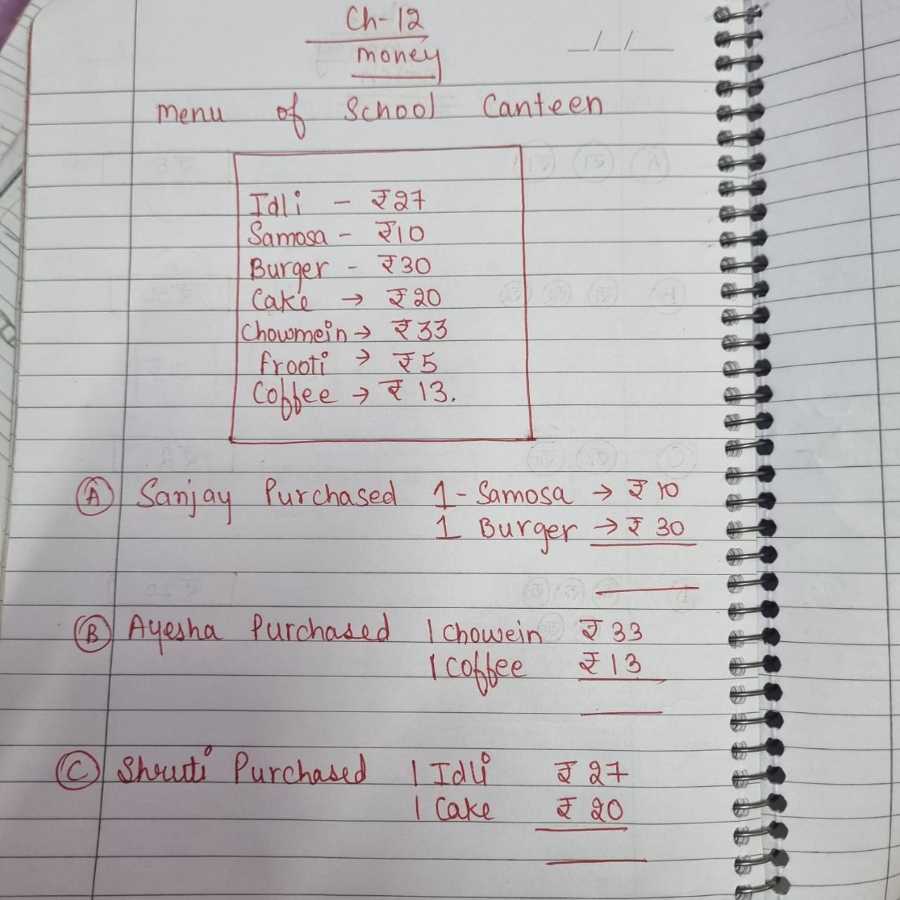 Ch-12
money
_/_/__
menu of School Canteen
Idli - ₹27
Samosa - ₹10
Burger - ₹30
Cake → ₹20
Chowmein → ₹33
frooti → ₹5
Coffee → ₹ 13.
(A) Sanjay Purchased 1 - Samosa → ₹ 10
1 Burger → ₹ 30
(B) Ayesha Purchased 1 Chowein ₹ 33
1 Coffee ₹ 13
(C) Shruti Purchased 1 Idli ₹ 27
1 Cake ₹ 20